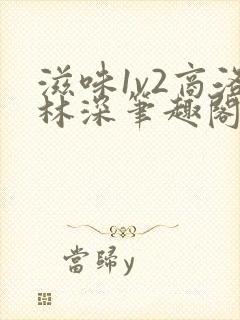 滋味1v2高洛
林深笔趣阁
當歸y